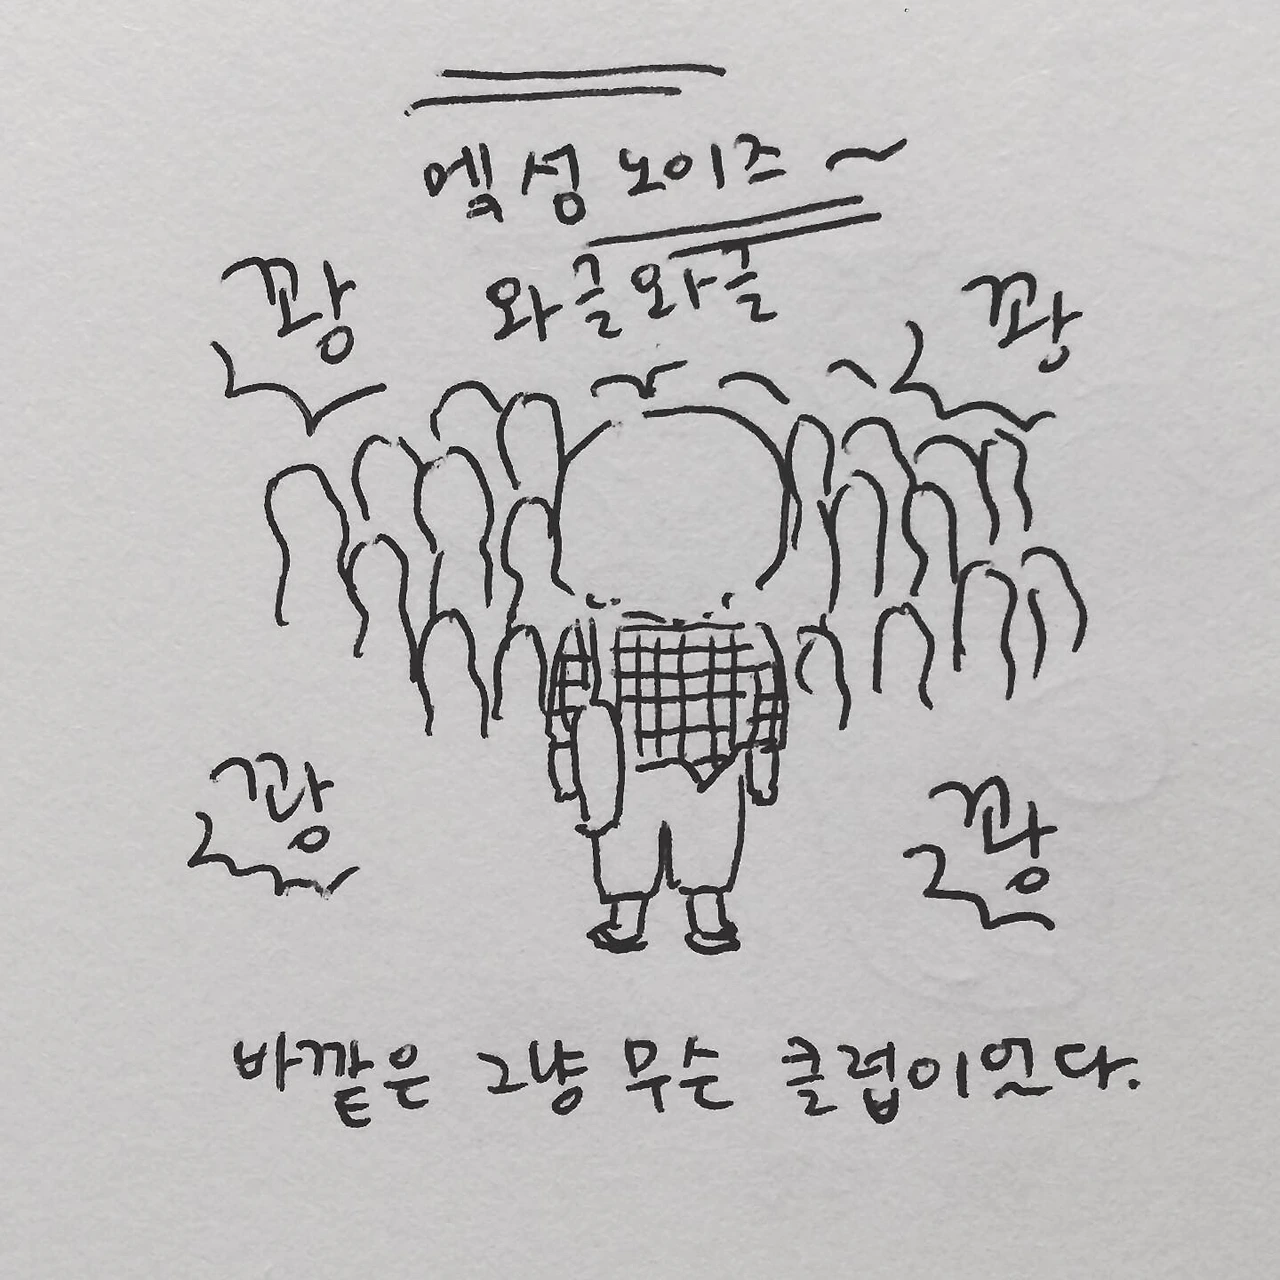 엑성 노이즈~
와글와글
꽝 꽝
꽝 꽝
바깥은 그냥 무슨 클럽이었다.